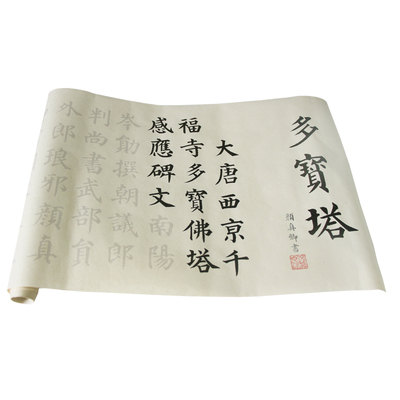 多寶塔
顏真卿書
大唐西京千
福寺多寶佛塔
感應碑文南陽
岑勛撰朝議郎
判尚書武部員
外郎琅邪顏真